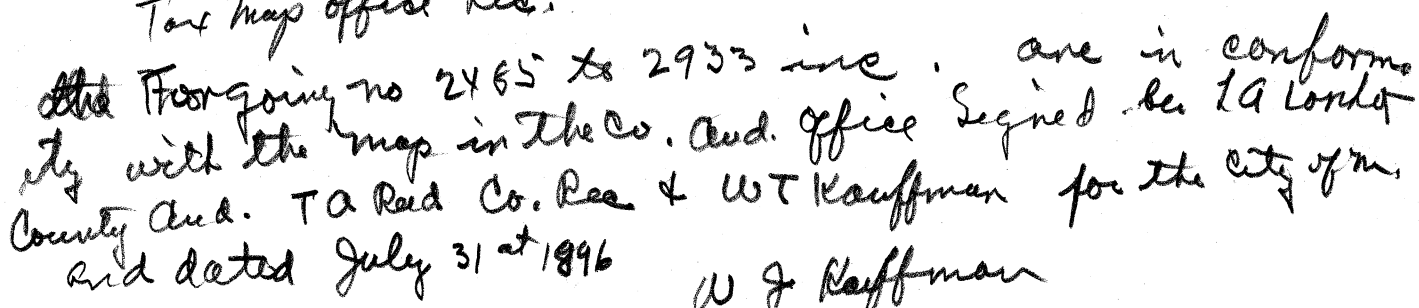 Tax map office Rec.
the Forgoing no 2465 to 2933 inc. are in conform.
ity with the map in the Co. Aud. office Signed be
County Aud. T A Reed Co. Rec & W T Kauffman for the City of M.
and dated July 31 at 1896
W J Kauffman